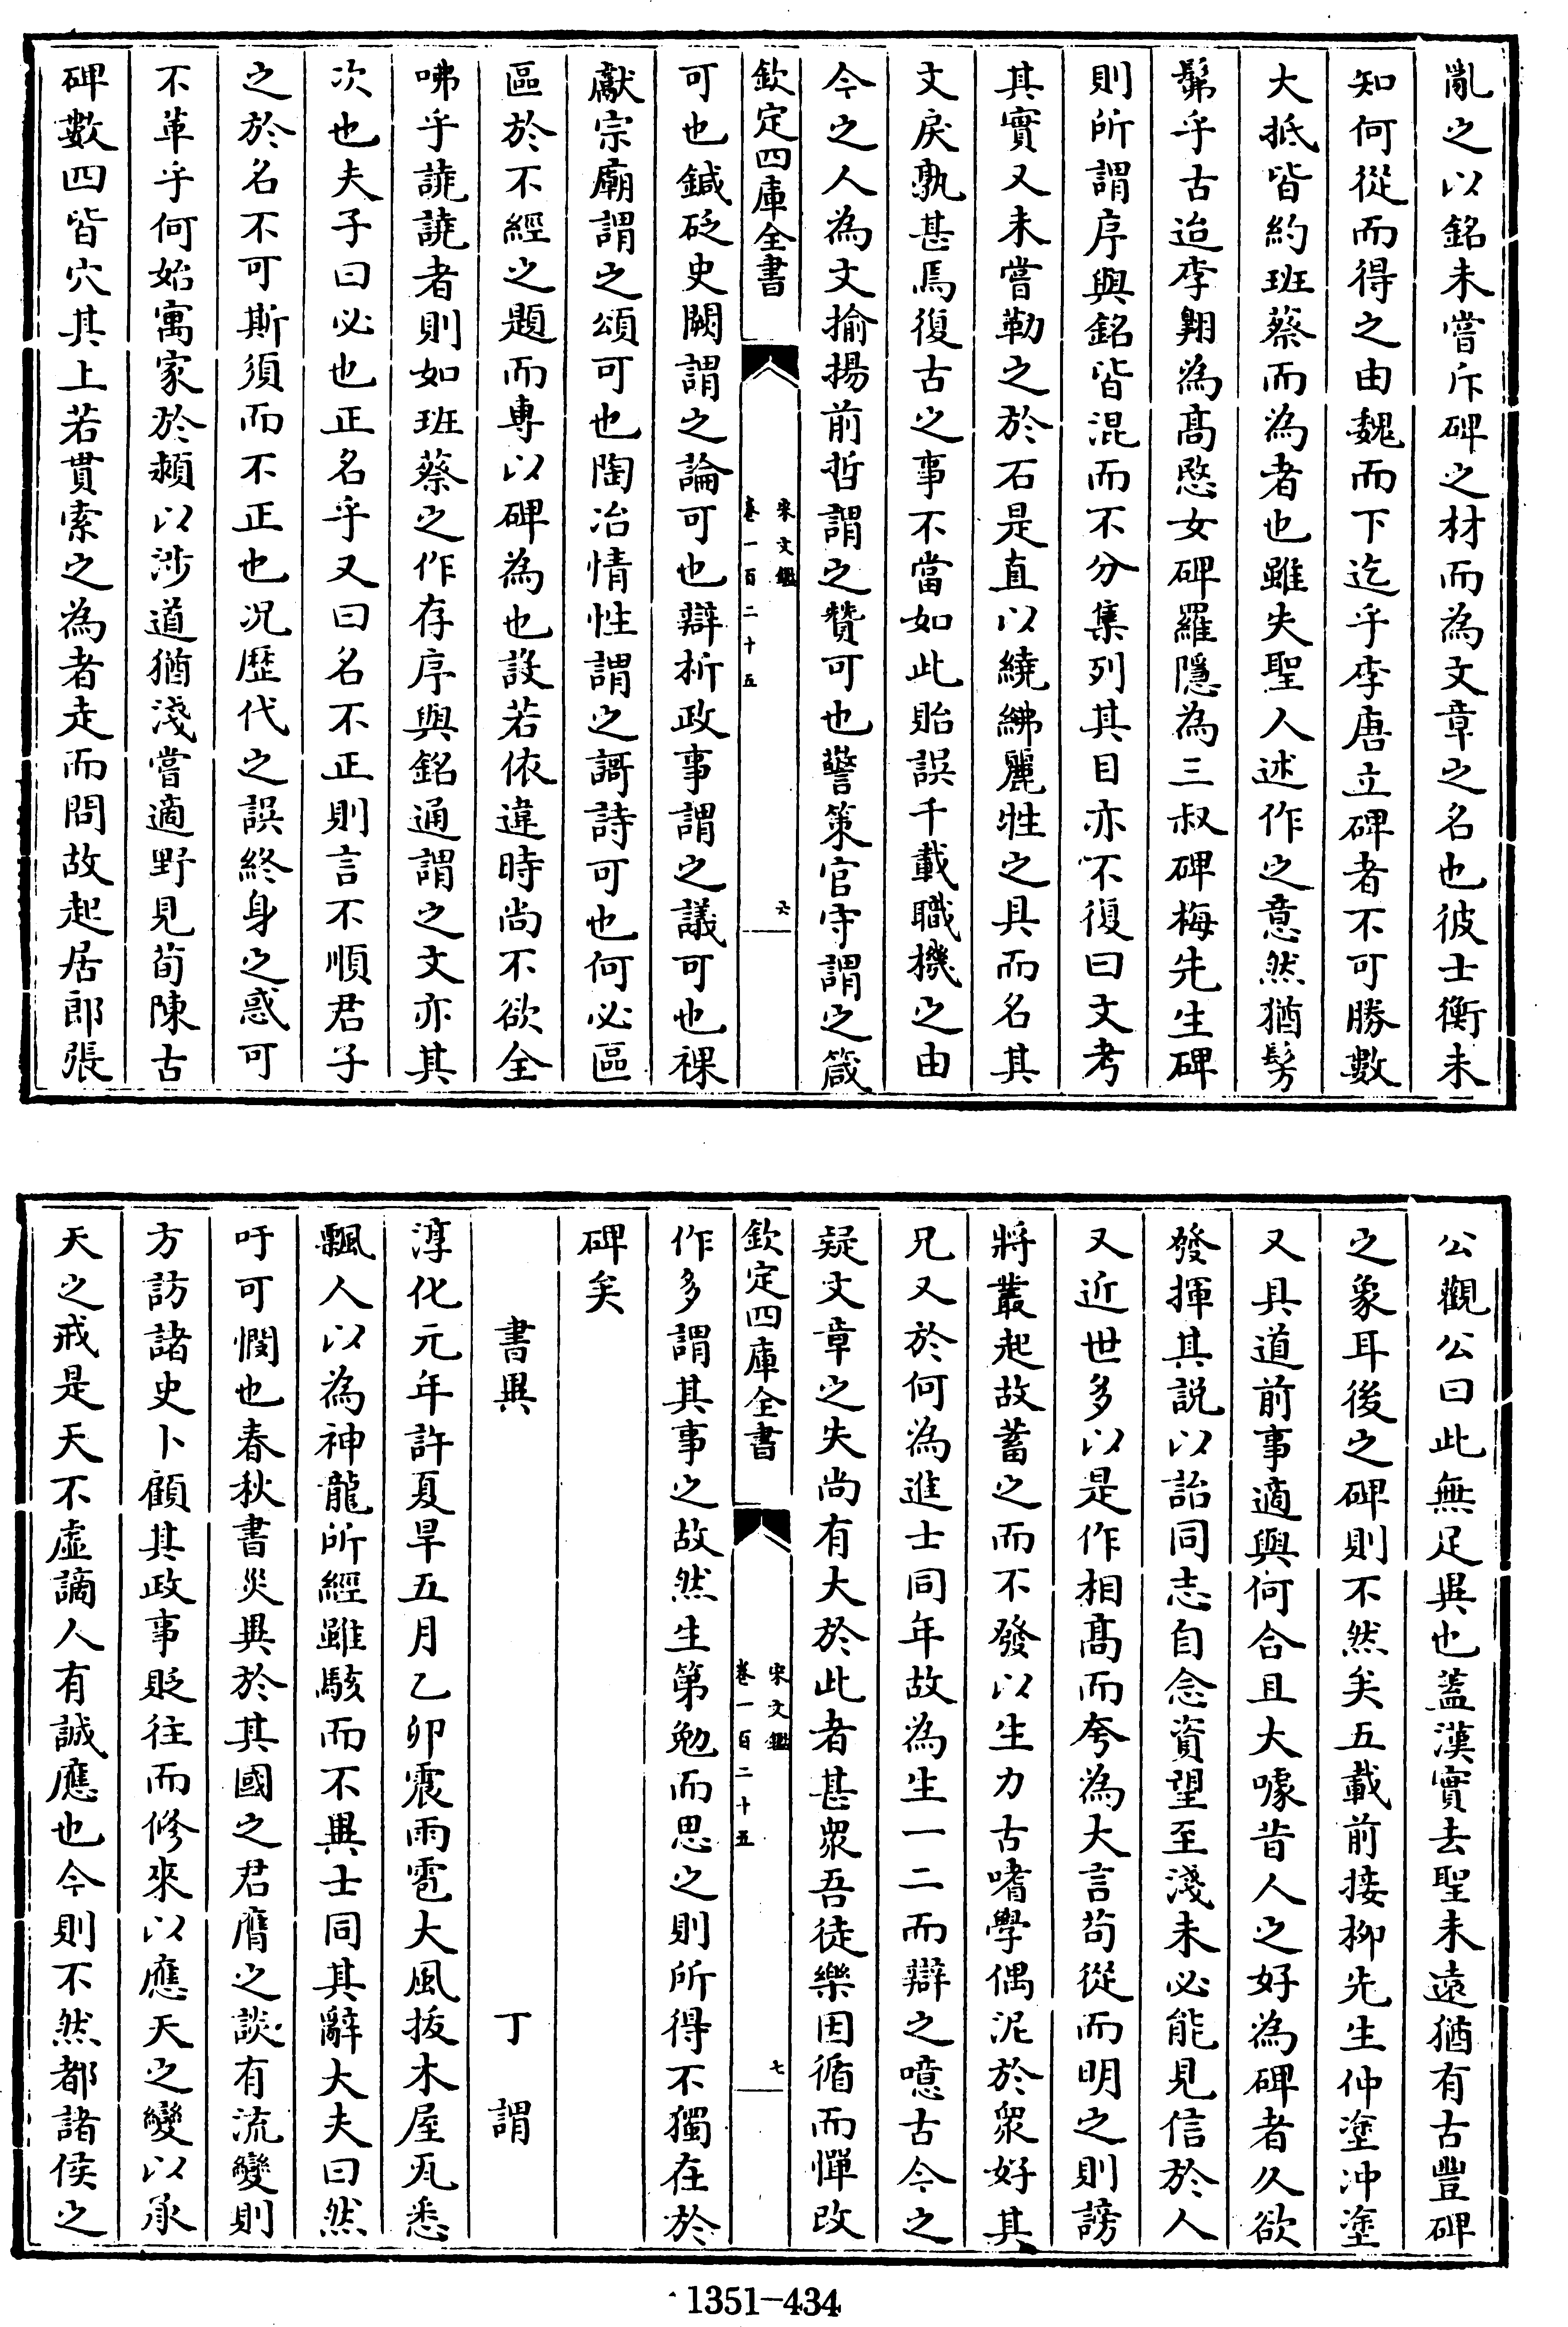 亂之以銘未嘗斥碑之材而為文章之名也彼士衡未
知何從而得之由魏而下迄乎李唐立碑者不可勝數
大抵皆約班蔡而為者也雖失聖人述作之意然猶髣
髴乎古迨李翺為髙愍女碑羅隱為三叔碑梅先生碑
則所謂序與銘皆混而不分集列其目亦不復曰文考
其實又未嘗勒之於石是直以繞紼麗牲之具而名其
文戾孰甚焉復古之事不當如此貽誤千載職機之由
今之人為文揄揚前哲謂之贊可也警策官守謂之箴
欽定四庫全書
宋文鑑
卷一百二十五
六
可也鍼砭史闕謂之論可也辯析政事謂之議可也祼
獻宗廟謂之頌可也陶冶情性謂之謌詩可也何必區
區於不經之題而專以碑為也設若依違時尚不欲全
咈乎譊譊者則如班蔡之作存序與銘通謂之文亦其
次也夫子曰必也正名乎又曰名不正則言不順君子
之於名不可斯須而不正也况歴代之誤終身之惑可
不革乎何始寓家於潁以涉道猶淺嘗適野見荀陳古
碑數四皆穴其上若貫索之為者走而問故起居郎張
公觀公曰此無足異也蓋漢實去聖未遠猶有古豐碑
之象耳後之碑則不然矣五載前接柳先生仲塗冲塗
又具道前事適與何合且大噱昔人之好為碑者久欲
發揮其説以詒同志自念資望至淺未必能見信於人
又近世多以是作相髙而夸為大言苟從而明之則謗
將叢起故蓄之而不發以生力古嗜學偶泥於衆好其
兄又於何為進士同年故為生一二而辯之噫古今之
疑文章之失尚有大於此者甚衆吾徒樂因循而憚改
欽定四庫全書
宋文鑑
卷一百二十五
七
作多謂其事之故然生第勉而思之則所得不獨在於
碑矣
書異 丁謂
淳化元年許夏旱五月乙卯震雨雹大風拔木屋瓦悉
飄人以為神龍所經雖駭而不異士同其辭大夫曰然
吁可憫也春秋書災異於其國之君膺之談有流變則
方訪諸史卜顧其政事貶往而修來以應天之變以承
天之戒是天不虛謫人有誠應也今則不然都諸侯之
1351-434